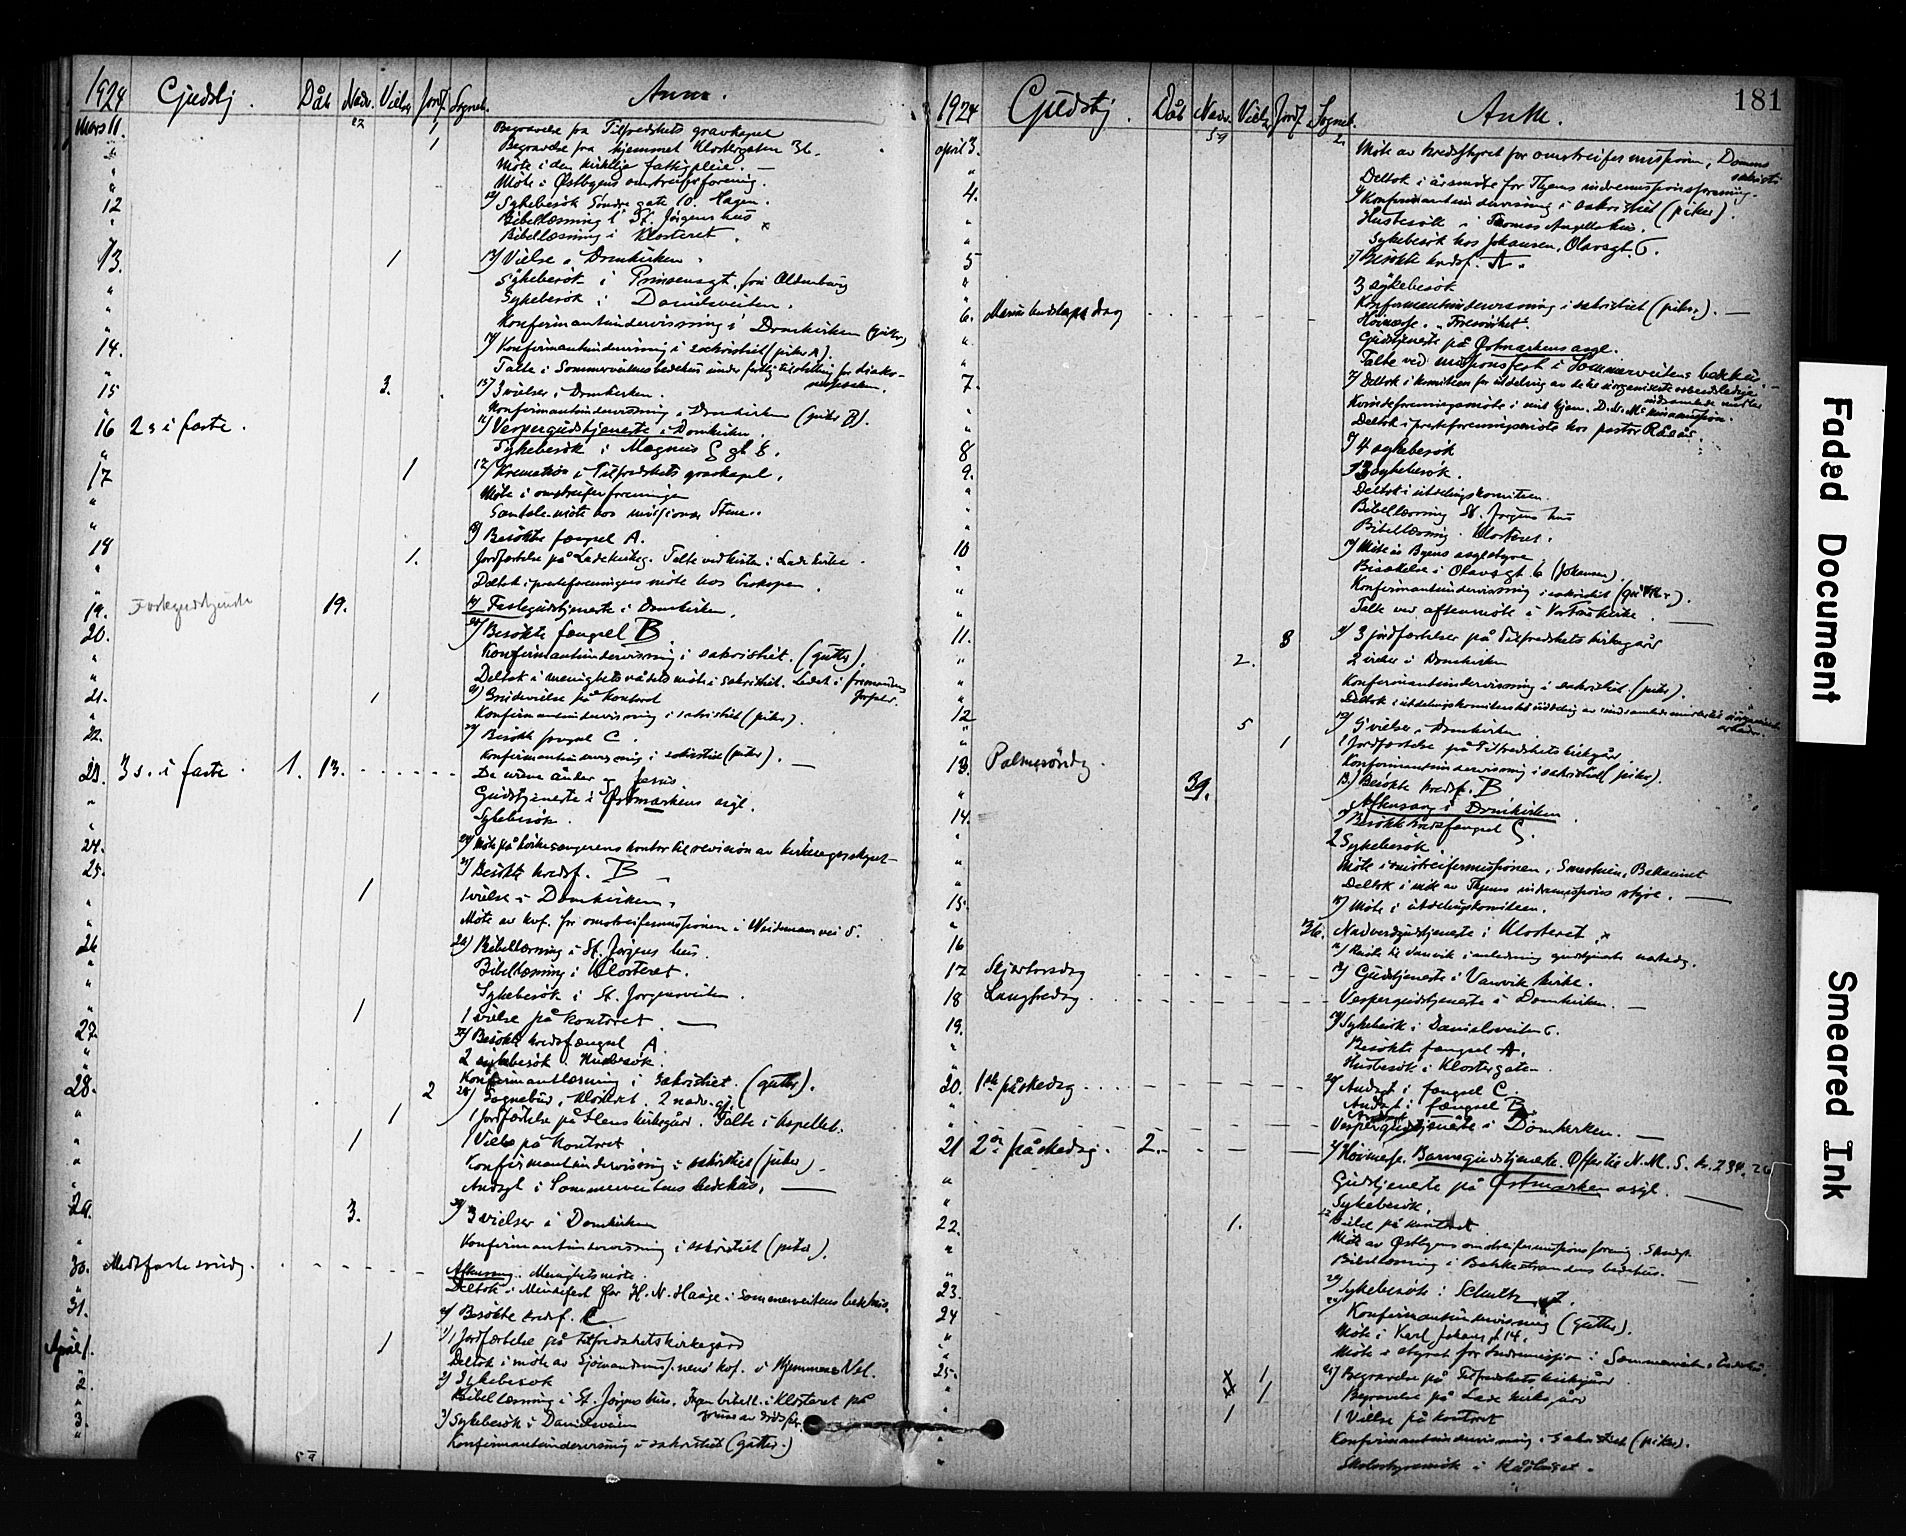 1924 Gudstj. Dåb Nadv. Vielse Jordf. Sogneb. Anm.
Mars 11. 1 Begravelse fra Tilfredshets gravkapel
" 1 Begravelse fra hjemmet Klostergaten 36.
" Møte i den kirkelige fattigpleie. —
" Møte i Østbyens omstreiferforening.
12 12) Sykebesøk Søndre gate 10. Hagen.
" Bibellæsning i St. Jørgens hus
" Bibellæsning i Klosteret.
13. 1 13) Vielse i Domkirken.
" Sykebesøk i Prinsensgt. fru Oldenburg
" Sykebesøk i Danielsveiten.
" Konfirmantundervisning i Domkirken (piker)
14. 14) Konfirmantundervisning i sakristiet (piker A).
" Talte i Sommerveitens bedehus
15 3. 15) 3 vielser i Domkirken.
" Konfirmantundervisning i Domkirken (piker B).
16 2 s i faste. 16) Vespergudstjeneste i Domkirken.
" Sykebesøk i Magnus G. gt 8.
17 1 17) Kremation i Tilfredshets gravkapel.
" Møte i omstreiferforeningen
" Samtale-møte hos misjonær Stene.
18 18) Besøkte fængsel A.
" 1. Jordfæstelse på Ladekirkeg. Talte ved kisten i Lade kirke.
" Deltok i presteforeningens møte hos biskopen.
19. Fastegudstjeneste 19. 19) Fastegudstjeneste i Domkirken.
20. 20) Besøkte fængsel B.
" Konfirmantundervisning i sakristiet. (gutter).
" Deltok i menighetsrådets møte i sakristiet. Ledet i formandens forfald.
21. 1 21) Brudevielse på kontoret
" Konfirmantundervisning i sakristiet (piker).
22. 22) Besøkte fængsel C.
" Konfirmantundervisning i sakristiet (piker). —
23. 3 s. i faste. 1. 13. De urene ånder og Jesus
" Gudstjeneste i Østmarkens asyl.
" Sykebesøk.
24. 24) Møte på kirkevergerens kontor til revision av
25. 25) Besøkte kredsf. B —
" 1 1 vielse i Domkirken.
" Møte av hof. for omstreifermissionen i Weidemans vei 5.
26 26) Bibellæsning i St. Jørgens hus.
" Bibellæsning i Klosteret.
" Sykebesøk i St. Jørgensveiten.
" 1 1 vielse på kontoret. —
27. 27) Besøkte kredsfængsel A.
" 2 sykebesøk Husbesøk.
" Konfirmantlæsning i sakristiet. (gutter).
28. 2 28) Sognebud i Klosteret. 2 nadv.gj.
" 1 1 Jordfæstelse på Ilens kirkegård. Talte i Kapellet.
" 1 1 Vielse på kontoret
" Konfirmantundervisning i sakristiet (piker)
" Andagt i Sommerveitens bedehus. —
29. 3. 29) 3 vielser i Domkirken
" Konfirmantundervisning i sakristiet (piker).
30. Midfaste søndag. Aftensang. Menighetsmøte.
" Deltok i Mindefest for H. N. Hauge i Sommerveitens bedehus.
31. 31) Besøkte kredsf. C.
April 1. 1 1) 1 Jordfæstelse på Tilfredshets kirkegård
" Deltok i møte av Sjømandsmisjonens hof. i Hjemmenes Vel.
2. 2) Sykebesøk
" Bibellæsning i St. Jørgens hus, Ingen bibell. i Klosteret på grund av dødsfald
3. 3) Sykebesøk i Danielsveiten
" Konfirmantundervisning i sakristiet (gutter.)
59
181
1924 Gudstj. Dåb Nadv. Vielse Jordf. Sogneb. Anm.
april 3. 59 2. Møte av kredsstyret for omstreifermisjonen i Domens sakristi
" Deltok i årsmøte for Byens indremisjonsforening.
4. 4) Konfirmantundervisning i sakristiet (piker).
" Husbesøk i Thomas Angells hus.
" Sykebesøk hos Johansen, Olavsgt. 6.
5 5) Besøkte kredsf. A.
" 3 sykebesøk
" Konfirmantundervisning i sakristiet (piker). —
6. Mariæ budskaps dag Høimesse.
" Gudstjeneste på Østmarkens asyl.
" Talte ved misjonsfest i Sommerveitens bedehus. —
7. 7) Deltok i komiteen for utdeling av de til uorganiserte arbeidsledige indsamlede midler
" Kvindeforeningsmøte i mit hjem.
" Deltok i presteforeningsmøte hos pastor Råås.
8 8) 4 sykebesøk
9. 3 sykebesøk.
" Deltok i utdelingskomiteen.
" Bibellæsning St. Jørgens hus
" Bibellæsning Klosteret.
10 10) Møte i Byens asylstyre
" Bisættelse i Olavsgt 6 (Johansen).
" Konfirmantundervisning i sakristiet (gutter).
" Talte ved aftenmøte i Vor Frue kirke. —
11. 3 11) 3 jordfæstelser på Tilfredshets kirkegård
" 2. 2 vielser i Domkirken
" Konfirmantundervisning i sakristiet (piker).
" Deltok i utdelingskomiteens
12 5 12) 5 vielser i Domkirken.
" 1 1 Jordfæstelse på Tilfredshets kirkegård
" Konfirmantundervisning i sakristiet (piker).
13. Palmesøndag. 13) Besøkte kredsf. B
" 39. Aftensang i Domkirken.
14. 14) Besøkte kredsfængsel C.
" 2 Sykebesøk.
" Møte i omstreifermissionen i Bakklandet
" Deltok i møte av Byens indremissions styre. —
15. 15) Møte i utdelingskomiteen.
" 36. Nadverdgudstjeneste i Klosteret
16 16) Reiste til Vanvik i anledning gudstjeneste næste dag.
17 Skjærtorsdag 17) Gudstjeneste i Vanvik kirke.
18 Langfredag. Vespergudstjeneste i Domkirken. —
19. 19) Sykebesøk i Danielsveiten 6.
" Besøkte fængsel A.
" Husbesøk i Klostergaten
20. 1ste påskedag. 20) Andagt i fængsel C.
" Andagt i fængsel B
" Vespergudstjeneste i Domkirken. —
21 2den påskedag. 2. 21) Høimesse. Barnegudstjeneste. Offer til N. M. S. kr. 234. 20
" Gudstjeneste på Østmarken asyl. —
" Sykebesøk.
22. 1. 22) Vielse på kontoret
" Møte av Østbyens omstreifermissions forening.
" Bibellæsning i Bakkestrandens bedehus. —
23. 23) Sykebesøk: Schultz gt.
24 24) Konfirmantundervisning (gutter).
" Møte i Karl Johans gt 14.
" Møte i styret for Indremisjon i Sommerveitens bedehus.
25. 1 25) Begravelse på Tilfredshets kirkegård
" 1 Begravelse på Lade kirkegård
" 1 1 Vielse på kontoret
" Konfirmantundervisning i sakristiet (piker).
" Skolestyremøte i Rådhuset.
Faded Document
Smeared Ink